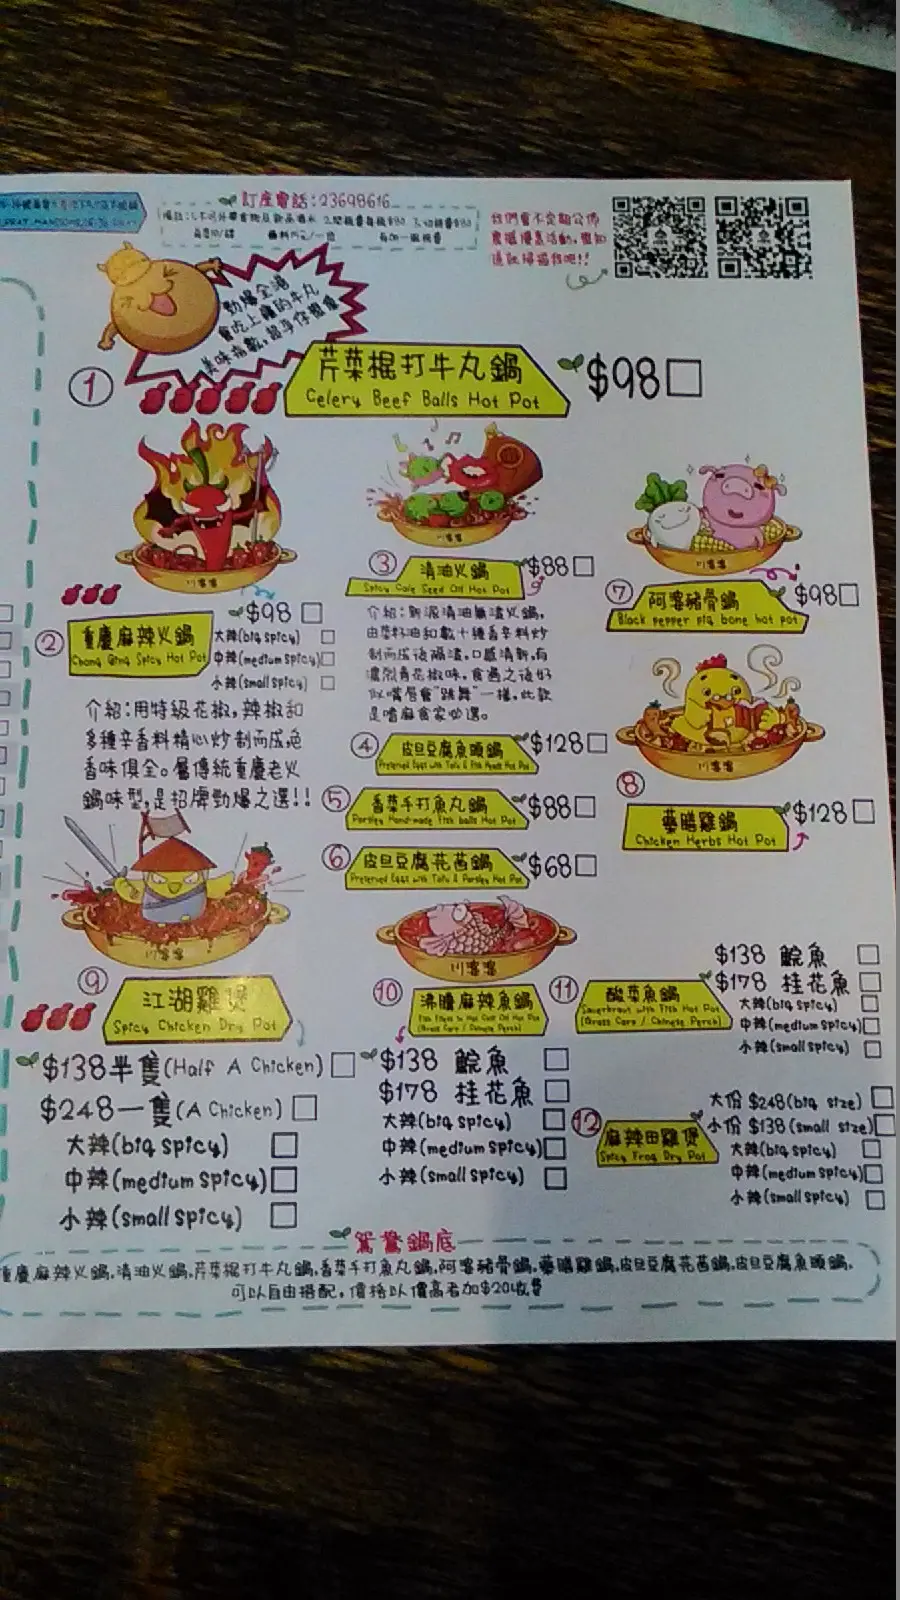 訂座電話:23698616
我們會不定期公佈
優惠活動,想知
道就掃描我吧!!
勁爆全港
會吃上癮的牛丸
① 芹菜棍打牛丸鍋 $98
Celery Beef Balls Hot Pot
② 重慶麻辣火鍋 $98
Chong Qing Spicy Hot Pot
大辣(big spicy)
中辣(medium spicy)
小辣(small spicy)
介紹:用特級花椒,辣椒和
多種辛香料精心炒制而成,色
香味俱全。屬傳統重慶老火
鍋味型,是招牌勁爆之選!!
③ 清油火鍋 $88
Spicy Cole Seed Oil Hot Pot
介紹:新派清油無渣火鍋,
由菜籽油和數十種香辛料炒
制而成後隔渣,口感清新,有
濃烈青花椒味,食過之後好
似嘴唇會"跳舞"一樣,此款
是嗜麻食家必選。
④ 皮旦豆腐魚頭鍋 $128
Preserved Eggs with Tofu & Fish Heads Hot Pot
⑤ 香菜手打魚丸鍋 $88
Parsley Hand-made Fish balls Hot Pot
⑥ 皮旦豆腐芫茜鍋 $68
Preserved Eggs with Tofu & Parsley Hot Pot
⑦ 阿婆豬骨鍋 $98
Black pepper pig bone hot pot
⑧ 藥膳雞鍋 $128
Chicken Herbs Hot Pot
⑨ 江湖雞煲
Spicy Chicken Dry Pot
$138半隻(Half A Chicken)
$248一隻(A Chicken)
大辣(big spicy)
中辣(medium spicy)
小辣(small spicy)
⑩ 沸騰麻辣魚鍋
Fish Fillets in Hot Chili Oil Hot Pot
(Grass Carp / Chinese Perch)
$138 鯇魚
$178 桂花魚
大辣(big spicy)
中辣(medium spicy)
小辣(small spicy)
⑪ 酸菜魚鍋
Sauerkraut with Fish Hot Pot
(Grass Carp / Chinese Perch)
$138 鯇魚
$178 桂花魚
大辣(big spicy)
中辣(medium spicy)
小辣(small spicy)
⑫ 麻辣田雞煲
Spicy Frog Dry Pot
大份 $248(big size)
小份 $138(small size)
大辣(big spicy)
中辣(medium spicy)
小辣(small spicy)
鴛鴦鍋底
重慶麻辣火鍋,清油火鍋,芹菜棍打牛丸鍋,香菜手打魚丸鍋,阿婆豬骨鍋,藥膳雞鍋,皮旦豆腐芫茜鍋,皮旦豆腐魚頭鍋,
可以自由搭配,價格以價高者加$20收費